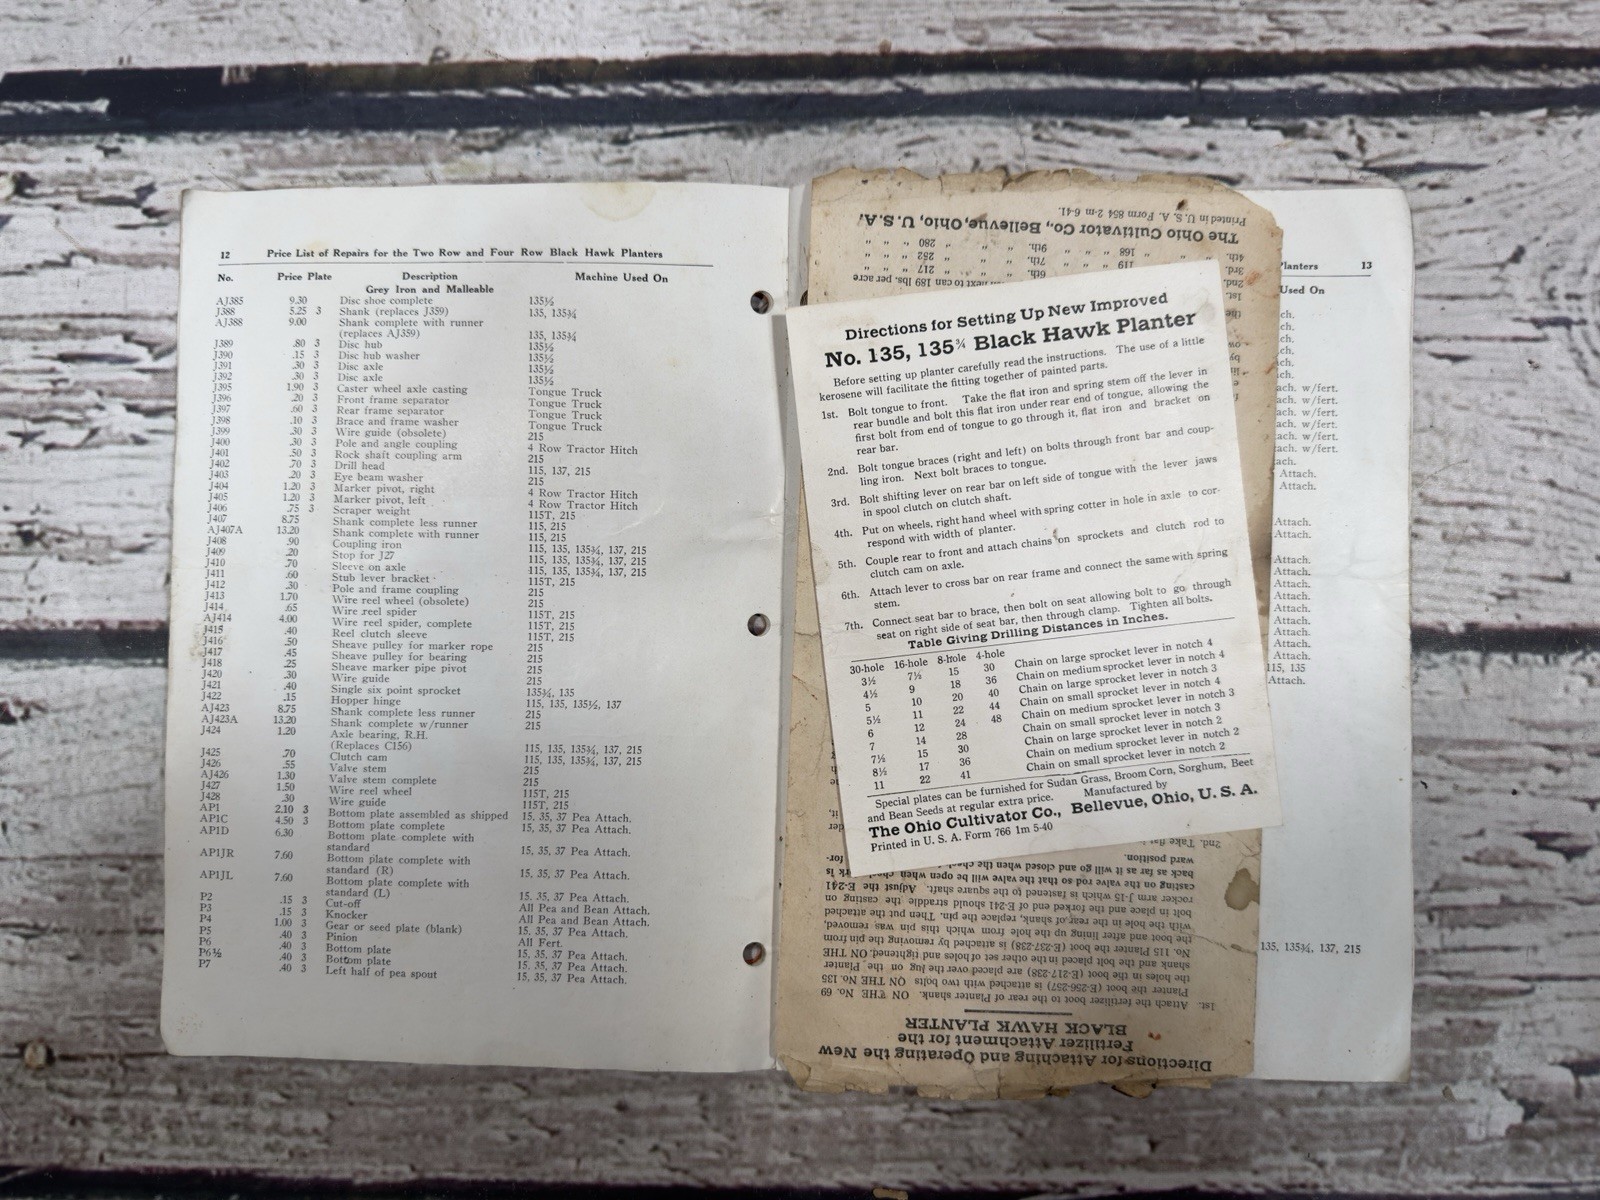 12 Price List of Repairs for the Two Row and Four Row Black Hawk Planters
No. Price Plate Description Machine Used On
Grey Iron and Malleable
AJ385 9.30 Disc shoe complete 135½
J388 5.25 3 Shank (replaces J359) 135, 135¾
AJ388 9.00 Shank complete with runner
(replaces AJ359) 135, 135¾
J389 .80 3 Disc hub 135½
J390 .15 3 Disc hub washer 135½
J391 .30 3 Disc axle 135½
J392 .30 3 Disc axle 135½
J395 1.90 3 Caster wheel axle casting Tongue Truck
J396 .20 3 Front frame separator Tongue Truck
J397 .60 3 Rear frame separator Tongue Truck
J398 .10 3 Brace and frame washer Tongue Truck
J399 .30 3 Wire guide (obsolete) 215
J400 .30 3 Pole and angle coupling 4 Row Tractor Hitch
J401 .50 3 Rock shaft coupling arm 215
J402 .70 3 Drill head 115, 137, 215
J403 .20 3 Eye beam washer 215
J404 1.20 3 Marker pivot, right 4 Row Tractor Hitch
J405 1.20 3 Marker pivot, left 4 Row Tractor Hitch
J406 .75 3 Scraper weight 115T, 215
J407 8.75 Shank complete less runner 115, 215
AJ407A 13.20 Shank complete with runner 115, 215
J408 .90 Coupling iron 115, 135, 135¾, 137, 215
J409 .20 Stop for J27 115, 135, 135¾, 137, 215
J410 .70 Sleeve on axle 115, 135, 135¾, 137, 215
J411 .60 Stub lever bracket 115T, 215
J412 .30 Pole and frame coupling 215
J413 1.70 Wire reel wheel (obsolete) 215
J414 .65 Wire reel spider 115T, 215
AJ414 4.00 Wire reel spider, complete 115T, 215
J415 .40 Reel clutch sleeve 115T, 215
J416 .50 Sheave pulley for marker rope 215
J417 .45 Sheave pulley for bearing 215
J418 .25 Sheave marker pipe pivot 215
J420 .30 Wire guide 215
J421 .40 Single six point sprocket 135¾, 135
J422 .15 Hopper hinge 115, 135, 135½, 137
AJ423 8.75 Shank complete less runner 215
AJ423A 13.20 Shank complete w/runner 215
J424 1.20 Axle bearing, R.H.
(Replaces C156) 115, 135, 135¾, 137, 215
J425 .70 Clutch cam 115, 135, 135¾, 137, 215
J426 .55 Valve stem 215
AJ426 1.30 Valve stem complete 215
J427 1.50 Wire reel wheel 115T, 215
J428 .30 Wire guide 115T, 215
AP1 2.10 3 Bottom plate assembled as shipped 15, 35, 37 Pea Attach.
AP1C 4.50 3 Bottom plate complete 15, 35, 37 Pea Attach.
AP1D 6.30 Bottom plate complete with
standard 15, 35, 37 Pea Attach.
AP1JR 7.60 Bottom plate complete with
standard (R) 15, 35, 37 Pea Attach.
AP1JL 7.60 Bottom plate complete with
standard (L) 15, 35, 37 Pea Attach.
P2 .15 3 Cut-off All Pea and Bean Attach.
P3 .15 3 Knocker All Pea and Bean Attach.
P4 1.00 3 Gear or seed plate (blank) 15, 35, 37 Pea Attach.
P5 .40 3 Pinion All Fert.
P6 .40 3 Bottom plate 15, 35, 37 Pea Attach.
P6½ .40 3 Bottom plate 15, 35, 37 Pea Attach.
P7 .40 3 Left half of pea spout 15, 35, 37 Pea Attach.
Directions for Setting Up New Improved
No. 135, 135¾ Black Hawk Planter
Before setting up planter carefully read the instructions. The use of a little
kerosene will facilitate the fitting together of painted parts.
1st. Bolt tongue to front. Take the flat iron and spring stem off the lever in
rear bundle and bolt this flat iron under rear end of tongue, allowing the
first bolt from end of tongue to go through it, flat iron and bracket on
rear bar.
2nd. Bolt tongue braces (right and left) on bolts through front bar and coup-
ling iron. Next bolt braces to tongue.
3rd. Bolt shifting lever on rear bar on left side of tongue with the lever jaws
in spool clutch on clutch shaft.
4th. Put on wheels, right hand wheel with spring cotter in hole in axle to cor-
respond with width of planter.
5th. Couple rear to front and attach chains on sprockets and clutch rod to
clutch cam on axle.
6th. Attach lever to cross bar on rear frame and connect the same with spring
stem.
7th. Connect seat bar to brace, then bolt on seat allowing bolt to go through
seat on right side of seat bar, then through clamp. Tighten all bolts.
Table Giving Drilling Distances in Inches.
30-hole 16-hole 8-hole 4-hole
3½ 7½ 15 30 Chain on large sprocket lever in notch 4
4½ 9 18 36 Chain on medium sprocket lever in notch 4
5 10 20 40 Chain on large sprocket lever in notch 3
5½ 11 22 44 Chain on small sprocket lever in notch 4
6 12 24 48 Chain on medium sprocket lever in notch 3
7 14 28 Chain on small sprocket lever in notch 3
7½ 15 30 Chain on large sprocket lever in notch 2
8½ 17 36 Chain on medium sprocket lever in notch 2
11 22 41 Chain on small sprocket lever in notch 2
Special plates can be furnished for Sudan Grass, Broom Corn, Sorghum, Beet
and Bean Seeds at regular extra price. Manufactured by
The Ohio Cultivator Co., Bellevue, Ohio, U. S. A.
Printed in U. S. A. Form 766 1m 5-40
Directions for Attaching and Operating the New
Fertilizer Attachment for the
BLACK HAWK PLANTER
1st. Attach the fertilizer boot to the rear of Planter shank. ON THE No. 69
Planter the boot (E-256-257) is attached with two bolts ON THE No. 135
the holes in the boot (E-217-238) are placed over the lug on the Planter
shank and the bolt placed in the other set of holes and tightened. ON THE
No. 115 Planter the boot (E-237-238) is attached by removing the pin from
the boot and after lining up the hole from which this pin was removed,
with the hole in the rear of shank, replace the pin. Then put the attached
bolt in place and the forked end of E-241 should straddle the casting on
rocker arm J-15 which is fastened to the square shaft. Adjust the E-241
casting on the valve rod so that the valve will be open when
back as far as it will go and closed when the
ward position.
2nd. Take
next to can 189 lbs. per acre
6th. " " " 217 " " "
3rd. 119 " " " 7th. " " " 252 " " "
4th. " 168 " " " 9th. " " " 280 " " "
The Ohio Cultivator Co., Bellevue, Ohio, U.S.A.
Printed in U. S. A. Form 854 2-m-6-41.
Planters 13
Used On
ch.
ch.
ch.
ch.
ch.
ach. w/fert.
ach. w/fert.
ach. w/fert.
ach. w/fert.
ach. w/fert.
ach. w/fert.
ach.
Attach.
Attach.
Attach.
Attach.
Attach.
Attach.
Attach.
Attach.
Attach.
Attach.
Attach.
Attach.
Attach.
115, 135
Attach.
135, 135¾, 137, 215